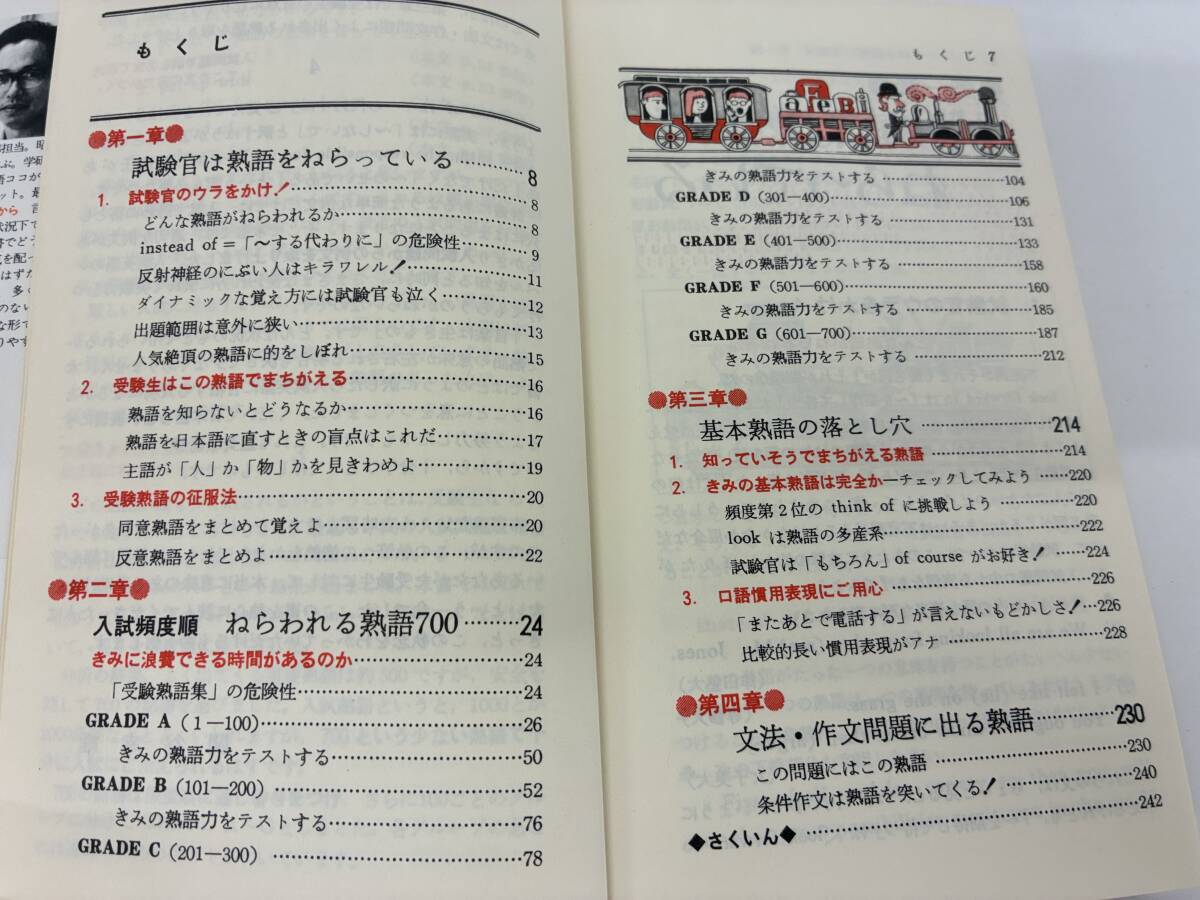 もくじ
●第一章●
試験官は熟語をねらっている………8
1. 試験官のウラをかけ！……………8
どんな熟語がねらわれるか……………8
instead of＝「〜する代わりに」の危険性…9
反射神経のにぶい人はキラワレル！……………11
ダイナミックな覚え方には試験官も泣く……………12
出題範囲は意外に狭い……………13
人気絶頂の熟語に的をしぼれ……………15
2. 受験生はこの熟語でまちがえる……………16
熟語を知らないとどうなるか……………16
熟語を日本語に直すときの盲点はこれだ……………17
主語が「人」か「物」かを見きわめよ……………19
3. 受験熟語の征服法……………20
同意熟語をまとめて覚えよ……………20
反意熟語をまとめよ……………22
●第二章●
入試頻度順 ねらわれる熟語700………24
きみに浪費できる時間があるのか……………24
「受験熟語集」の危険性……………24
GRADE A（1—100）……………26
きみの熟語力をテストする……………50
GRADE B（101—200）……………52
きみの熟語力をテストする……………76
GRADE C（201—300）……………78
もくじ 7
a F e B i
きみの熟語力をテストする……………104
GRADE D（301—400）……………106
きみの熟語力をテストする……………131
GRADE E（401—500）……………133
きみの熟語力をテストする……………158
GRADE F（501—600）……………160
きみの熟語力をテストする……………185
GRADE G（601—700）……………187
きみの熟語力をテストする……………212
●第三章●
基本熟語の落とし穴……………214
1. 知っていそうでまちがえる熟語……………214
2. きみの基本熟語は完全か—チェックしてみよう……220
頻度第2位の think of に挑戦しよう……………220
look は熟語の多産系……………222
試験官は「もちろん」of course がお好き！……224
3. 口語慣用表現にご用心……………226
「またあとで電話する」が言えないもどかしさ！…226
比較的長い慣用表現がアナ……………228
●第四章●
文法・作文問題に出る熟語……………230
この問題にはこの熟語……………230
条件作文は熟語を突いてくる！……………240
◆さくいん◆……………242